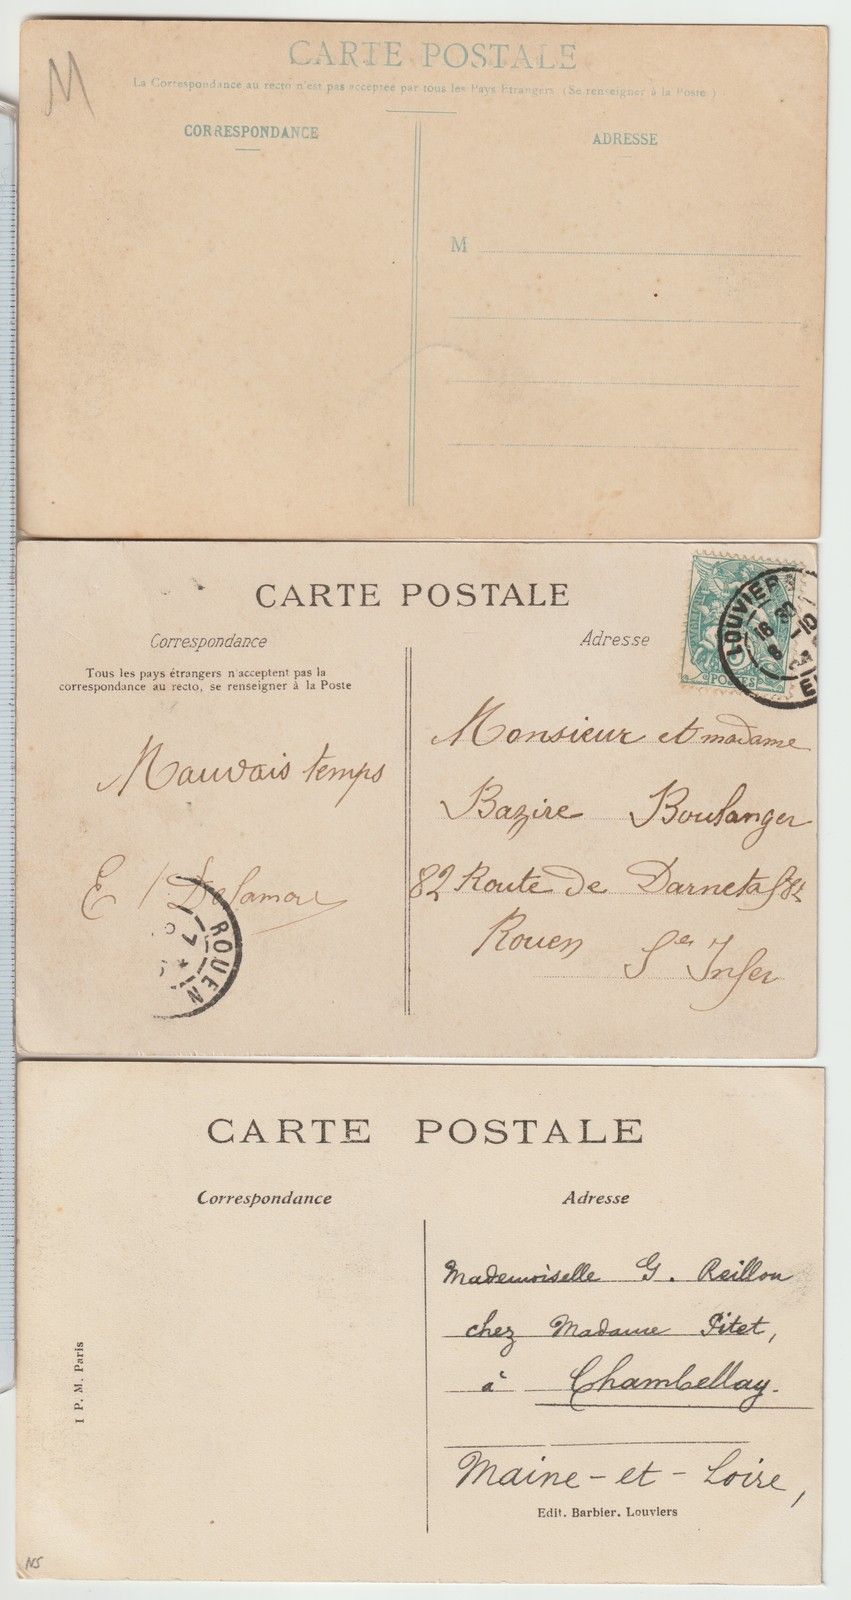 M
CARTE POSTALE
La Correspondance au recto n'est pas acceptée par tous les Pays Etrangers (Se renseigner à la Poste)
CORRESPONDANCE
ADRESSE
M
CARTE POSTALE
Correspondance
Adresse
Tous les pays étrangers n'acceptent pas la
correspondance au recto, se renseigner à la Poste
POSTES
LOUVIERS
Mauvais temps
E
Delamare
ROUEN
Monsieur et madame
Bazire Boulanger
82 Route de Darnetal
Rouen
Sne Infer
CARTE POSTALE
Correspondance
Adresse
Mademoiselle G. Reillon
chez Madame Pitet,
à Chambellay.
Maine-et-Loire,
Edit. Barbier, Louviers
I P. M. Paris
NS